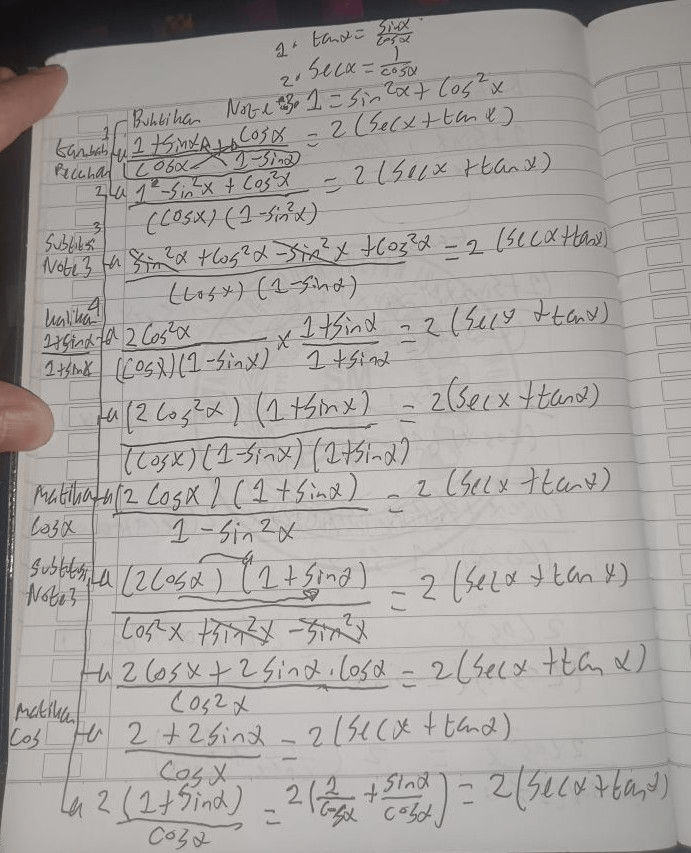 1. tanα = sinα/cosα
2. Secα = 1/cosα
Buktikan Note 3. 1 = sin²α + Cos²x
1 (1+sinα)/(cosα) + (cosα)/(1-sinα) = 2(Secx + tan x)
2 (1² - sin²x + cos²x)/((cosx)(1-sin²x)) = 2(Secx + tanx)
3 Subtitsi Note 3 (sin²α + cos²α - sin²x + cos²α)/((cosx)(1-sinα)) = 2(Secx + tanx)
4 kalikan (1+sinα)/(1+sinx) (2cos²α)/((cosx)(1-sinx)) × (1+sinα)/(1+sinα) = 2(secx + tanx)
((2cos²α)(1+sinx))/((cosx)(1-sinx)(1+sinα)) = 2(secx + tanα)
Matikan cosα ((2cosx)(1+sinα))/(1-sin²x) = 2(Secx + tanx)
Subtitsi Note 3 ((2cosα)(1+sinα))/(cos²x + sin²x - sin²x) = 2(Secx + tan x)
(2cosx + 2sinα.cosα)/(cos²x) = 2(secx + tan α)
Matikan cos (2 + 2sinα)/(cosx) = 2(Secx + tanα)
(2(1+sinα))/(cosα) = 2(1/cosα + sinα/cosα) = 2(Secx + tanα)